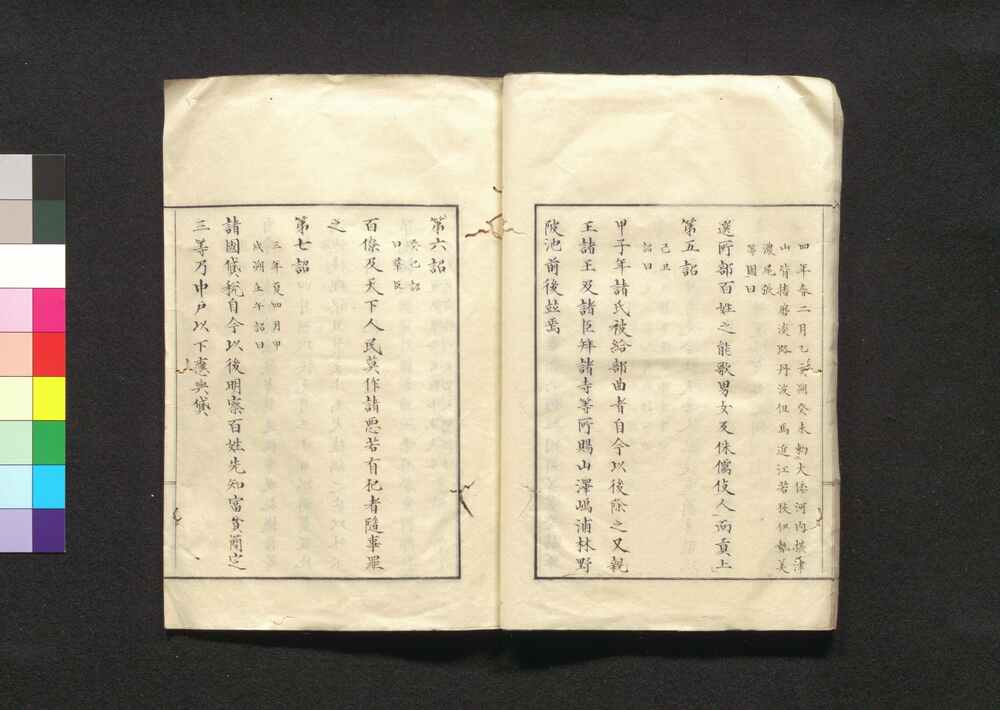 四年春二月乙亥朔癸未勅大倭河内摂津
山背播磨淡路丹波但馬近江若狭伊勢美
濃尾張
等國曰
選所部百姓之能歌男女及侏儒伎人而貢上
第五詔
己丑
詔曰
甲子年諸氏被給部曲者自今以後除之又親
王諸王及諸臣幷諸寺等所賜山澤嶋浦林野
陂池前後並焉
第六詔
癸巳詔
曰羣臣
百僚及天下人民莫作諸悪若有犯者隨事罪
之
第七詔
三年夏四月甲
戌朔壬午詔曰
諸國貸税自今以後明察百姓先知富貧蕳定
三等乃中戸以下應與貸